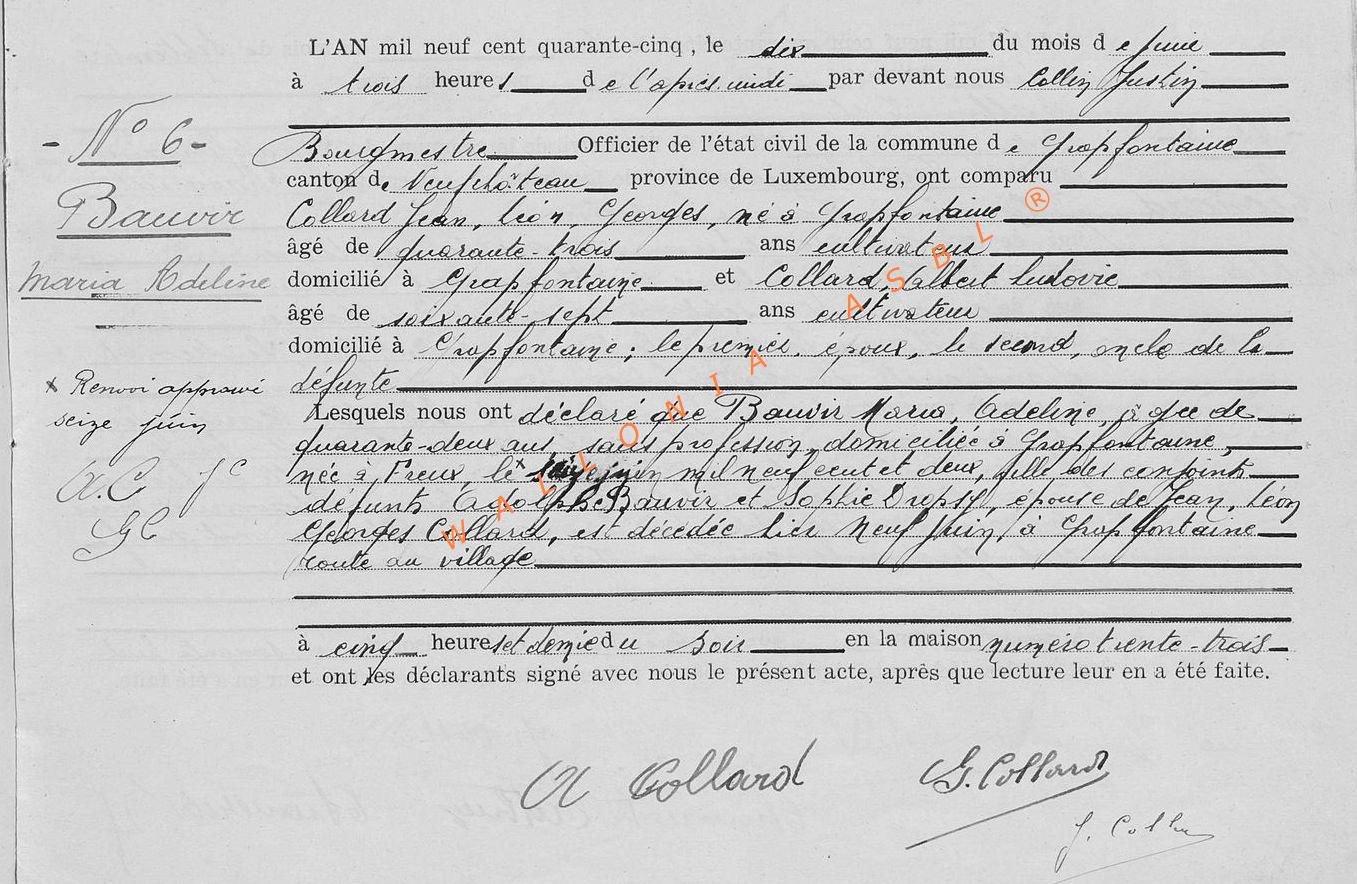 L'AN mil neuf cent quarante-cinq, le dix du mois de juin
à trois heures de l'après-midi par devant nous Collin Justin
- N° 6 -
Bourgmestre Officier de l'état civil de la commune de Grapfontaine
canton de Neufchâteau province de Luxembourg, ont comparu
Bauvir
Collard Jean, Léon, Georges, né à Grapfontaine
âgé de quarante-trois ans cultivateur
Maria Adeline
domicilié à Grapfontaine et Collard, Albert Ludovic
âgé de soixante-sept ans cultivateur
domicilié à Grapfontaine; le premier, époux, le second, oncle de la
défunte
x Renvoi approuvé
seize juin
A.C J C
GC
Lesquels nous ont déclaré que Bauvir Maria, Adeline, âgée de
quarante-deux ans, sans profession, domiciliée à Grapfontaine,
née à Freux, le x juin mil neuf cent et deux, fille des conjoints
défunts Adolphe Bauvir et Sophie Dropsy, épouse de Jean, Léon
Georges Collard, est décédée hier neuf juin, à Grapfontaine
route au village
à cinq heures et demie du soir en la maison numéro trente-trois
et ont les déclarants signé avec nous le présent acte, après que lecture leur en a été faite.
A Collard
G. Collard
J. Collin
WALLONIA ASBL ®